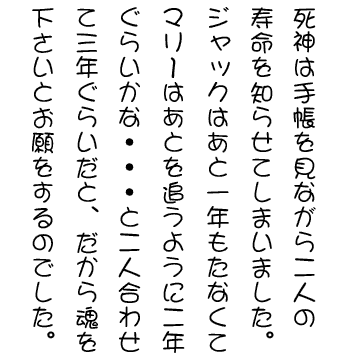 死神は手帳を見ながら二人の
寿命を知らせてしまいました。
ジャックはあと一年もたなくて
マリーはあとを追うように二年
ぐらいかな・・・と二人合わせ
て三年ぐらいだと、だから魂を
下さいとお願をするのでした。